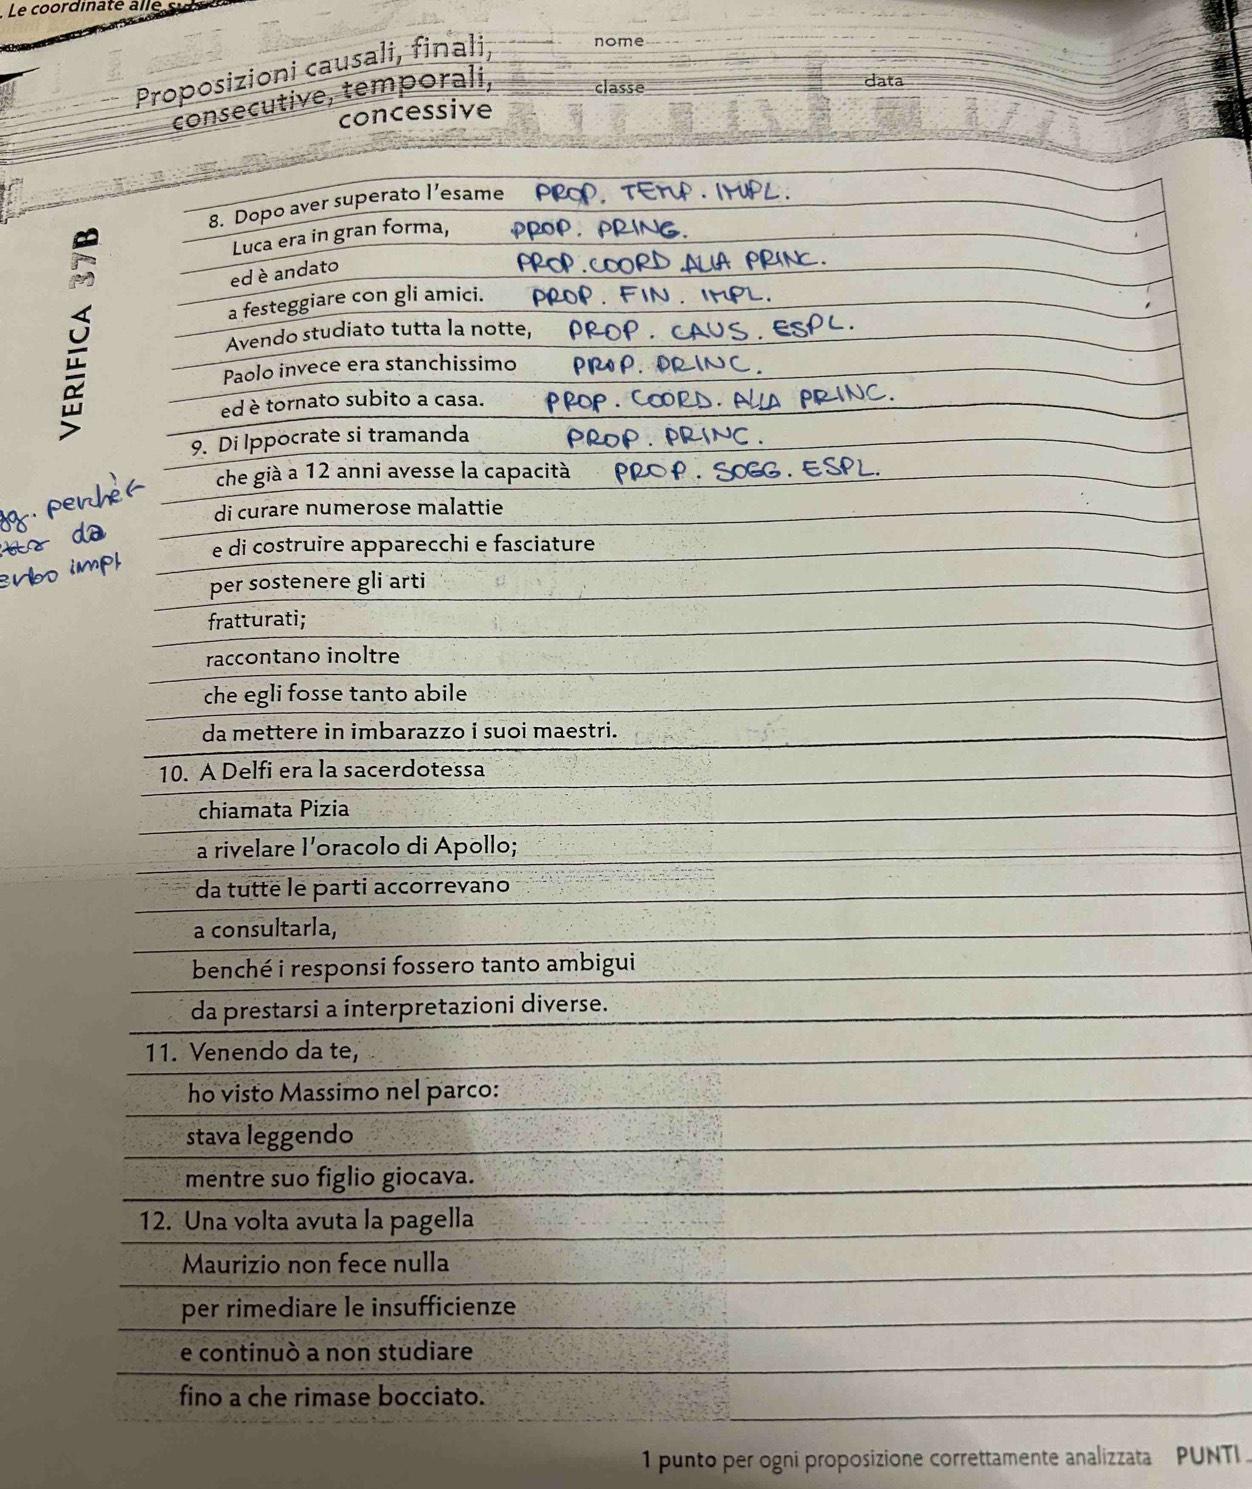 . Le coordinate alle
Proposizioni causali, finali,
consecutive, temporali,
concessive
nome
classe
data
VERIFICA 37B
8. Dopo aver superato l'esame PROP. TEMP. IMPL.
Luca era in gran forma, PROP. PRING.
ed è andato PROP. COORD. ALLA PRINC.
a festeggiare con gli amici. PROP. FIN. IMPL.
Avendo studiato tutta la notte, PROP. CAUS. ESPL.
Paolo invece era stanchissimo PROP. PRINC.
ed è tornato subito a casa. PROP. COORD. ALLA PRINC.
9. Di Ippocrate si tramanda PROP. PRINC.
che già a 12 anni avesse la capacità PROP. SOGG. ESPL.
perchè
da
impl
di curare numerose malattie
e di costruire apparecchi e fasciature
per sostenere gli arti
fratturati;
raccontano inoltre
che egli fosse tanto abile
da mettere in imbarazzo i suoi maestri.
10. A Delfi era la sacerdotessa
chiamata Pizia
a rivelare l'oracolo di Apollo;
da tutte le parti accorrevano
a consultarla,
benché i responsi fossero tanto ambigui
da prestarsi a interpretazioni diverse.
11. Venendo da te,
ho visto Massimo nel parco:
stava leggendo
mentre suo figlio giocava.
12. Una volta avuta la pagella
Maurizio non fece nulla
per rimediare le insufficienze
e continuò a non studiare
fino a che rimase bocciato.
1 punto per ogni proposizione correttamente analizzata PUNTI